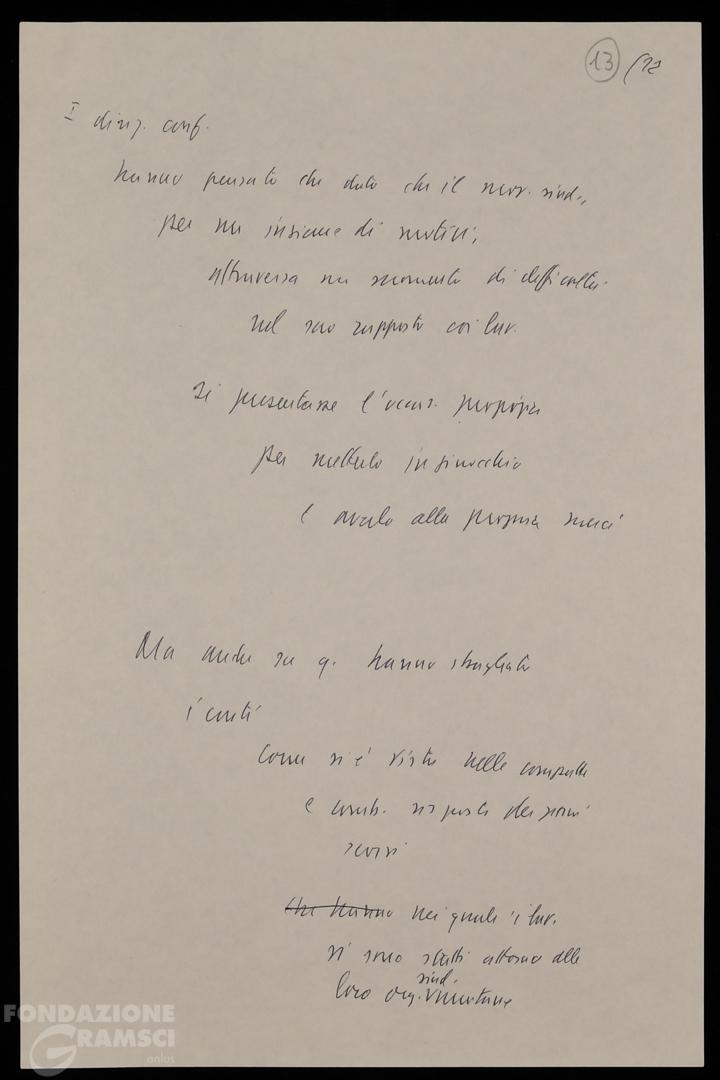 13 (12
I dirig. conf.
hanno pensato che dato che il mov. sind.,
per un insieme di motivi,
attraversa un momento di difficoltà
nel suo rapporto coi lav.
si presentasse l'occas. propizia
per metterlo in ginocchio
e averlo alla propria mercé
Ma anche su q. hanno sbagliato
i conti
come si è visto nelle compatte
e comb. risposte dei giorni
scorsi
che hanno nei quali i lav.
si sono stretti attorno alle
loro org. sind. unitarie
FONDAZIONE
GRAMSCI
onlus